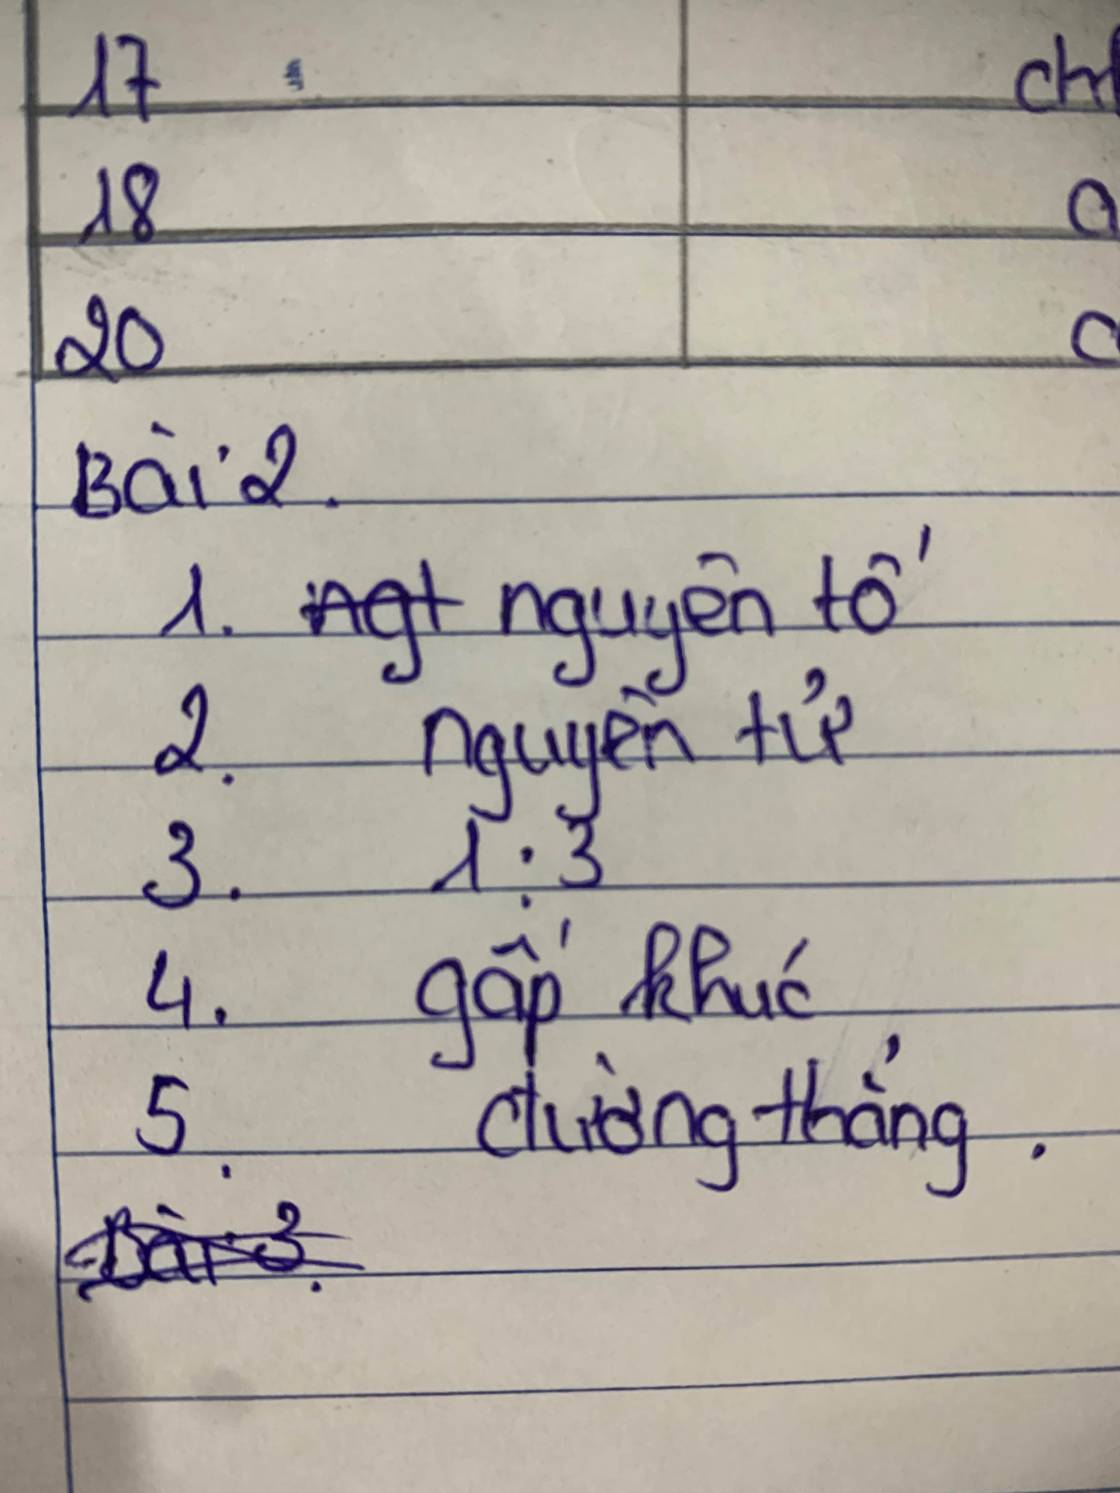 17
18
20
Bài 2.
1. nguyên tố
2. nguyên tử
3. 1:3
4. gấp khúc
5. đường thẳng.
Bài 3.